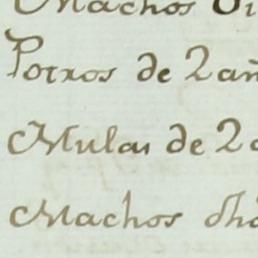 Machos
Potros de 2 añ
Mulas de 2 a
Machos dho